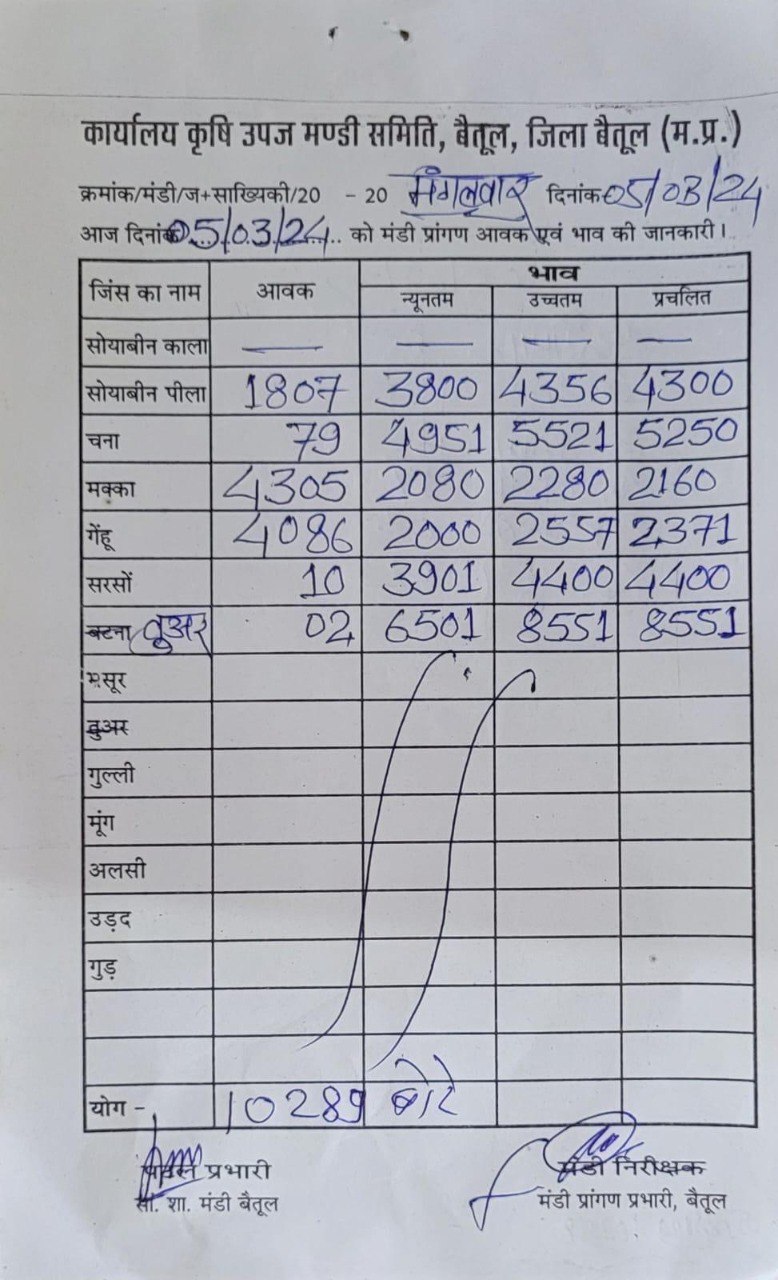 कार्यालय कृषि उपज मण्डी समिति, बैतूल, जिला बैतूल (म.प्र.)
क्रमांक/मंडी/ज+साख्यिकी/20 - 20 मंगलवार दिनांक 05/03/24
आज दिनांक 05/03/24 को मंडी प्रांगण आवक एवं भाव की जानकारी।
जिंस का नाम आवक भाव
न्यूनतम उच्चतम प्रचलित
सोयाबीन काला — — — —
सोयाबीन पीला 1807 3800 4356 4300
चना 79 4951 5521 5250
मक्का 4305 2080 2280 2160
गेंहू 4086 2000 2557 2371
सरसों 10 3901 4400 4400
बटना तुअर 02 6501 8551 8551
मसूर
तुअर
गुल्ली
मूंग
अलसी
उड़द
गुड़
योग - 10289 बोरे
प्रभारी मंडी निरीक्षक
सां. शा. मंडी बैतूल मंडी प्रांगण प्रभारी, बैतूल